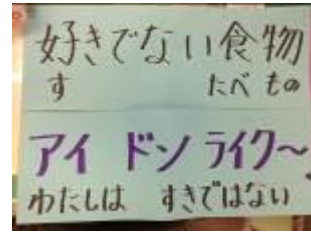 好きでない食物
す たべもの
アイ ドン ライク〜
わたしは すきではない